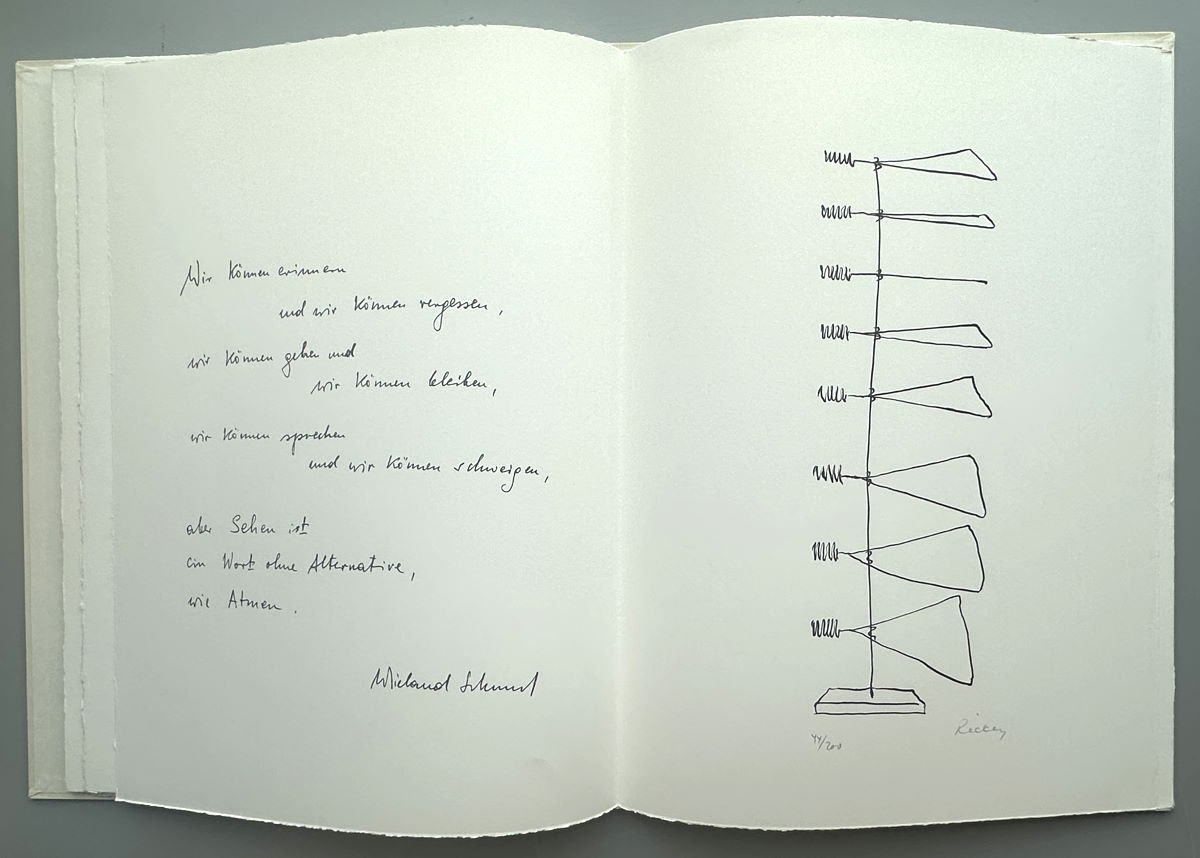 Wir können erinnern
und wir können vergessen,
wir können gehen und
wir können bleiben,
wir können sprechen
und wir können schweigen,
aber Sehen ist
ein Wort ohne Alternative,
wie Atmen.
Wieland Schmied
44/200
Rickey